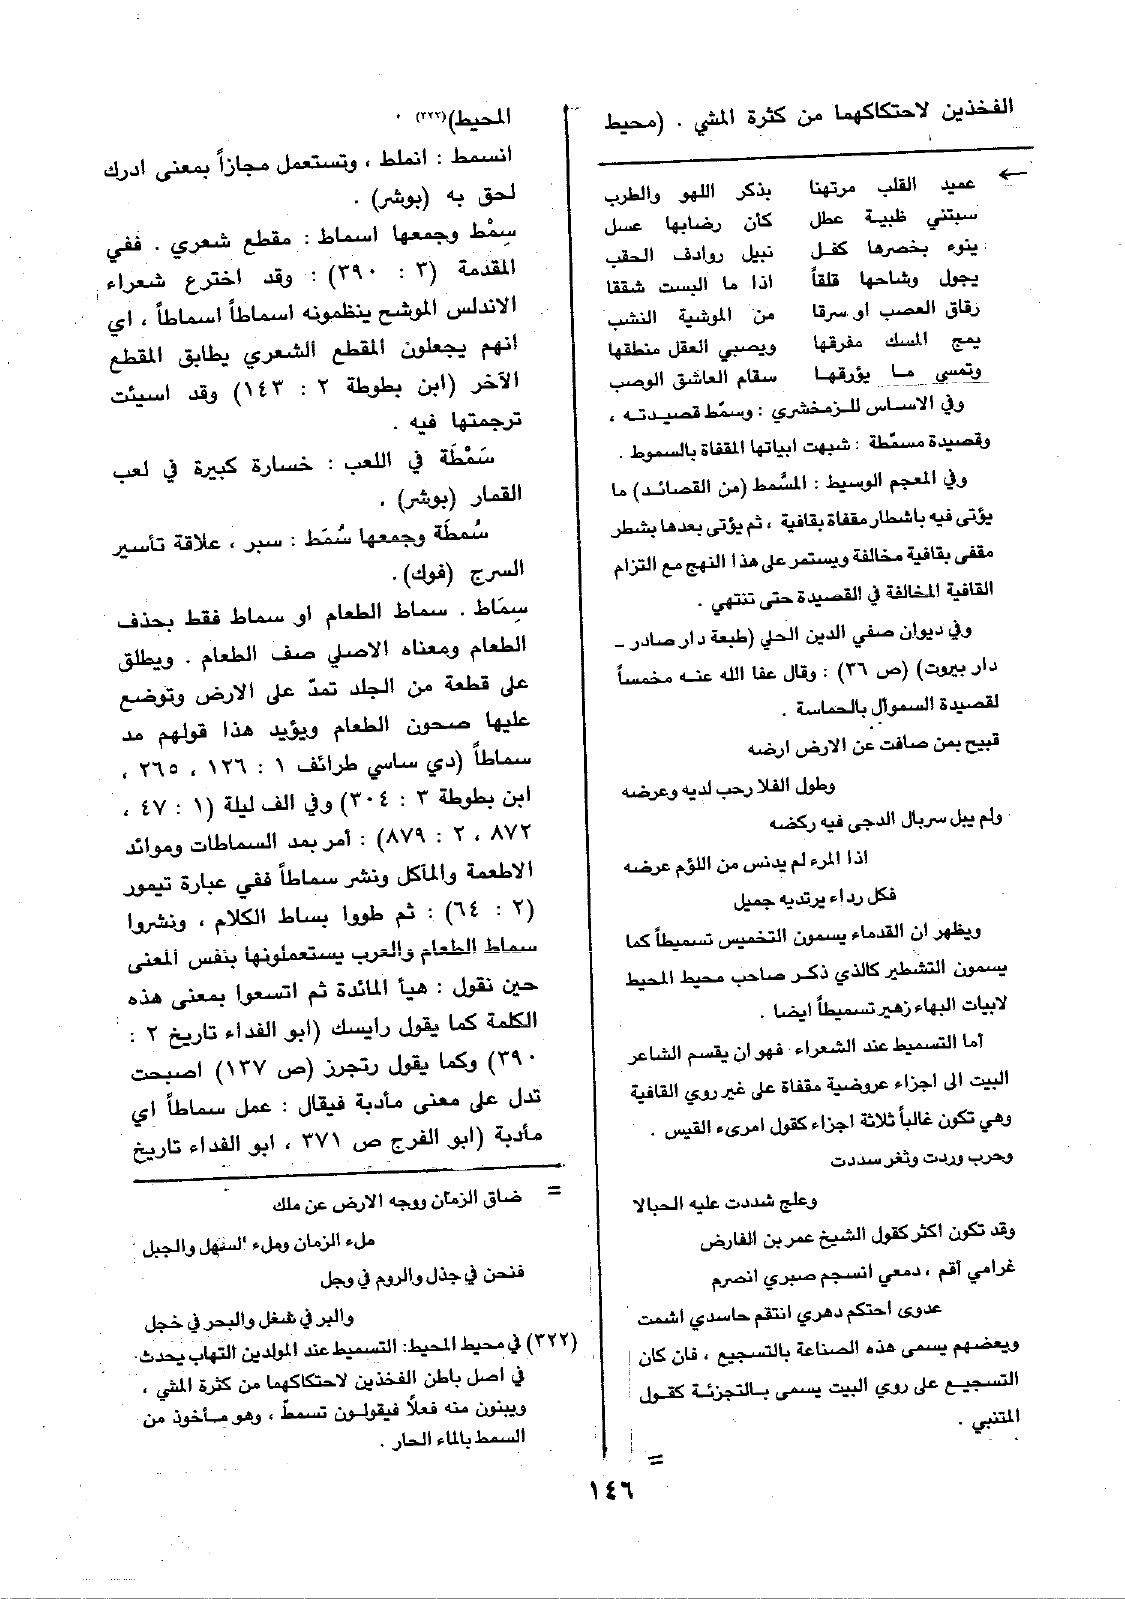 الفخذين لاحتكاكهما من كثرة المشي . (محيط
← عميد القلب مرتهنا بذكر اللهو والطرب
سبتني ظبية عطل كأن رضابها عسل
ينوء بخصرها كفل نبيل روادف الحقب
يجول وشاحها قلقاً اذا ما البست شققا
رقاق العصب او سرقا من الموشية النشب
يمج المسك مفرقها ويصبي العقل منطقها
وتمسي ما يؤرقها سقام العاشق الوصب
وفي الاساس للزمخشري : وسمّط قصيدته ،
وقصيدة مسمّطة : شبهت ابياتها المقفاة بالسموط .
وفي المعجم الوسيط : المسُمط (من القصائد) ما
يؤتى فيه باشطار مقفاة بقافية ، ثم يؤتى بعدها بشطر
مقفى بقافية مخالفة ويستمر على هذا النهج مع التزام
القافية المخالفة في القصيدة حتى تنتهي .
وفي ديوان صفي الدين الحلي (طبعة دار صادر –
دار بيروت) (ص ٣٦) : وقال عفا الله عنه مخمساً
لقصيدة السموأل بالحماسة .
قبيح بمن صافت عن الارض ارضه
وطول الفلا رحب لديه وعرضه
ولم يبل سربال الدجى فيه ركضه
اذا المرء لم يدنس من اللؤم عرضه
فكل رداء يرتديه جميل
ويظهر ان القدماء يسمون التخميس تسميطاً كما
يسمون التشطير كالذي ذكر صاحب محيط المحيط
لابيات البهاء زهير تسميطاً ايضا .
أما التسميط عند الشعراء فهو ان يقسم الشاعر
البيت الى اجزاء عروضية مقفاة على غير روي القافية
وهي تكون غالباً ثلاثة اجزاء كقول امرىء القيس .
وحرب وردت وثغر سددت
وعلج شددت عليه الحبالا
وقد تكون اكثر كقول الشيخ عمر بن الفارض
غرامي أقم ، دمعي انسجم صبري انصرم
عدوى احتكم دهري انتقم حاسدي اشمت
ويعضهم يسمى هذه الصناعة بالتسجيع ، فان كان
التسجيع على روي البيت يسمى بالتجزئة كقول
المتنبي .
=
المحيط)(٣٢٢) .
انسمط : انملط ، وتستعمل مجازاً بمعنى ادرك
لحق به (بوشر) .
سِمْط وجمعها اسماط : مقطع شعري . ففي
المقدمة (٣ : ٣٩٠) : وقد اخترع شعراء
الاندلس الموشح ينظمونه اسماطاً اسماطاً ، اي
انهم يجعلون المقطع الشعري يطابق المقطع
الآخر (ابن بطوطة ٢ : ١٤٣) وقد اسيئت
ترجمتها فيه .
سَمْطَة في اللعب : خسارة كبيرة في لعب
القمار (بوشر) .
سُمطَة وجمعها سُمَط : سبر ، علاقة تأسير
السرج (فوك) .
سِمَاط . سماط الطعام او سماط فقط بحذف
الطعام ومعناه الاصلي صف الطعام . ويطلق
على قطعة من الجلد تمدّ على الارض وتوضع
عليها صحون الطعام ويؤيد هذا قولهم مد
سماطاً (دي ساسي طرائف ١ : ١٢٦ ، ٢٦٥ ،
ابن بطوطة ٣ : ٣٠٤) وفي الف ليلة (١ : ٤٧ ،
٨٧٢ ، ٢ : ٨٧٩) : أمر بمد السماطات وموائد
الاطعمة والمآكل ونشر سماطاً ففي عبارة تيمور
(٢ : ٦٤) : ثم طووا بساط الكلام ، ونشروا
سماط الطعام والعرب يستعملونها بنفس المعنى
حين نقول : هيأ المائدة ثم اتسعوا بمعنى هذه
الكلمة كما يقول رايسك (ابو الفداء تاريخ ٢ :
٣٩٠) وكما يقول رتجرز (ص ١٣٧) اصبحت
تدل على معنى مأدبة فيقال : عمل سماطاً اي
مأدبة (ابو الفرج ص ٣٧١ ، ابو الفداء تاريخ
= ضاق الزمان ووجه الارض عن ملك
ملء الزمان وملء السهل والجبل
فنحن في جذل والروم في وجل
والبر في شغل والبحر في خجل
(٣٢٢) في محيط المحيط: التسميط عند المولدين التهاب يحدث
في اصل باطن الفخذين لاحتكاكهما من كثرة المشي ،
ويبنون منه فعلاً فيقولون تسمطّ ، وهو مأخوذ من
السمط بالماء الحار .
١٤٦